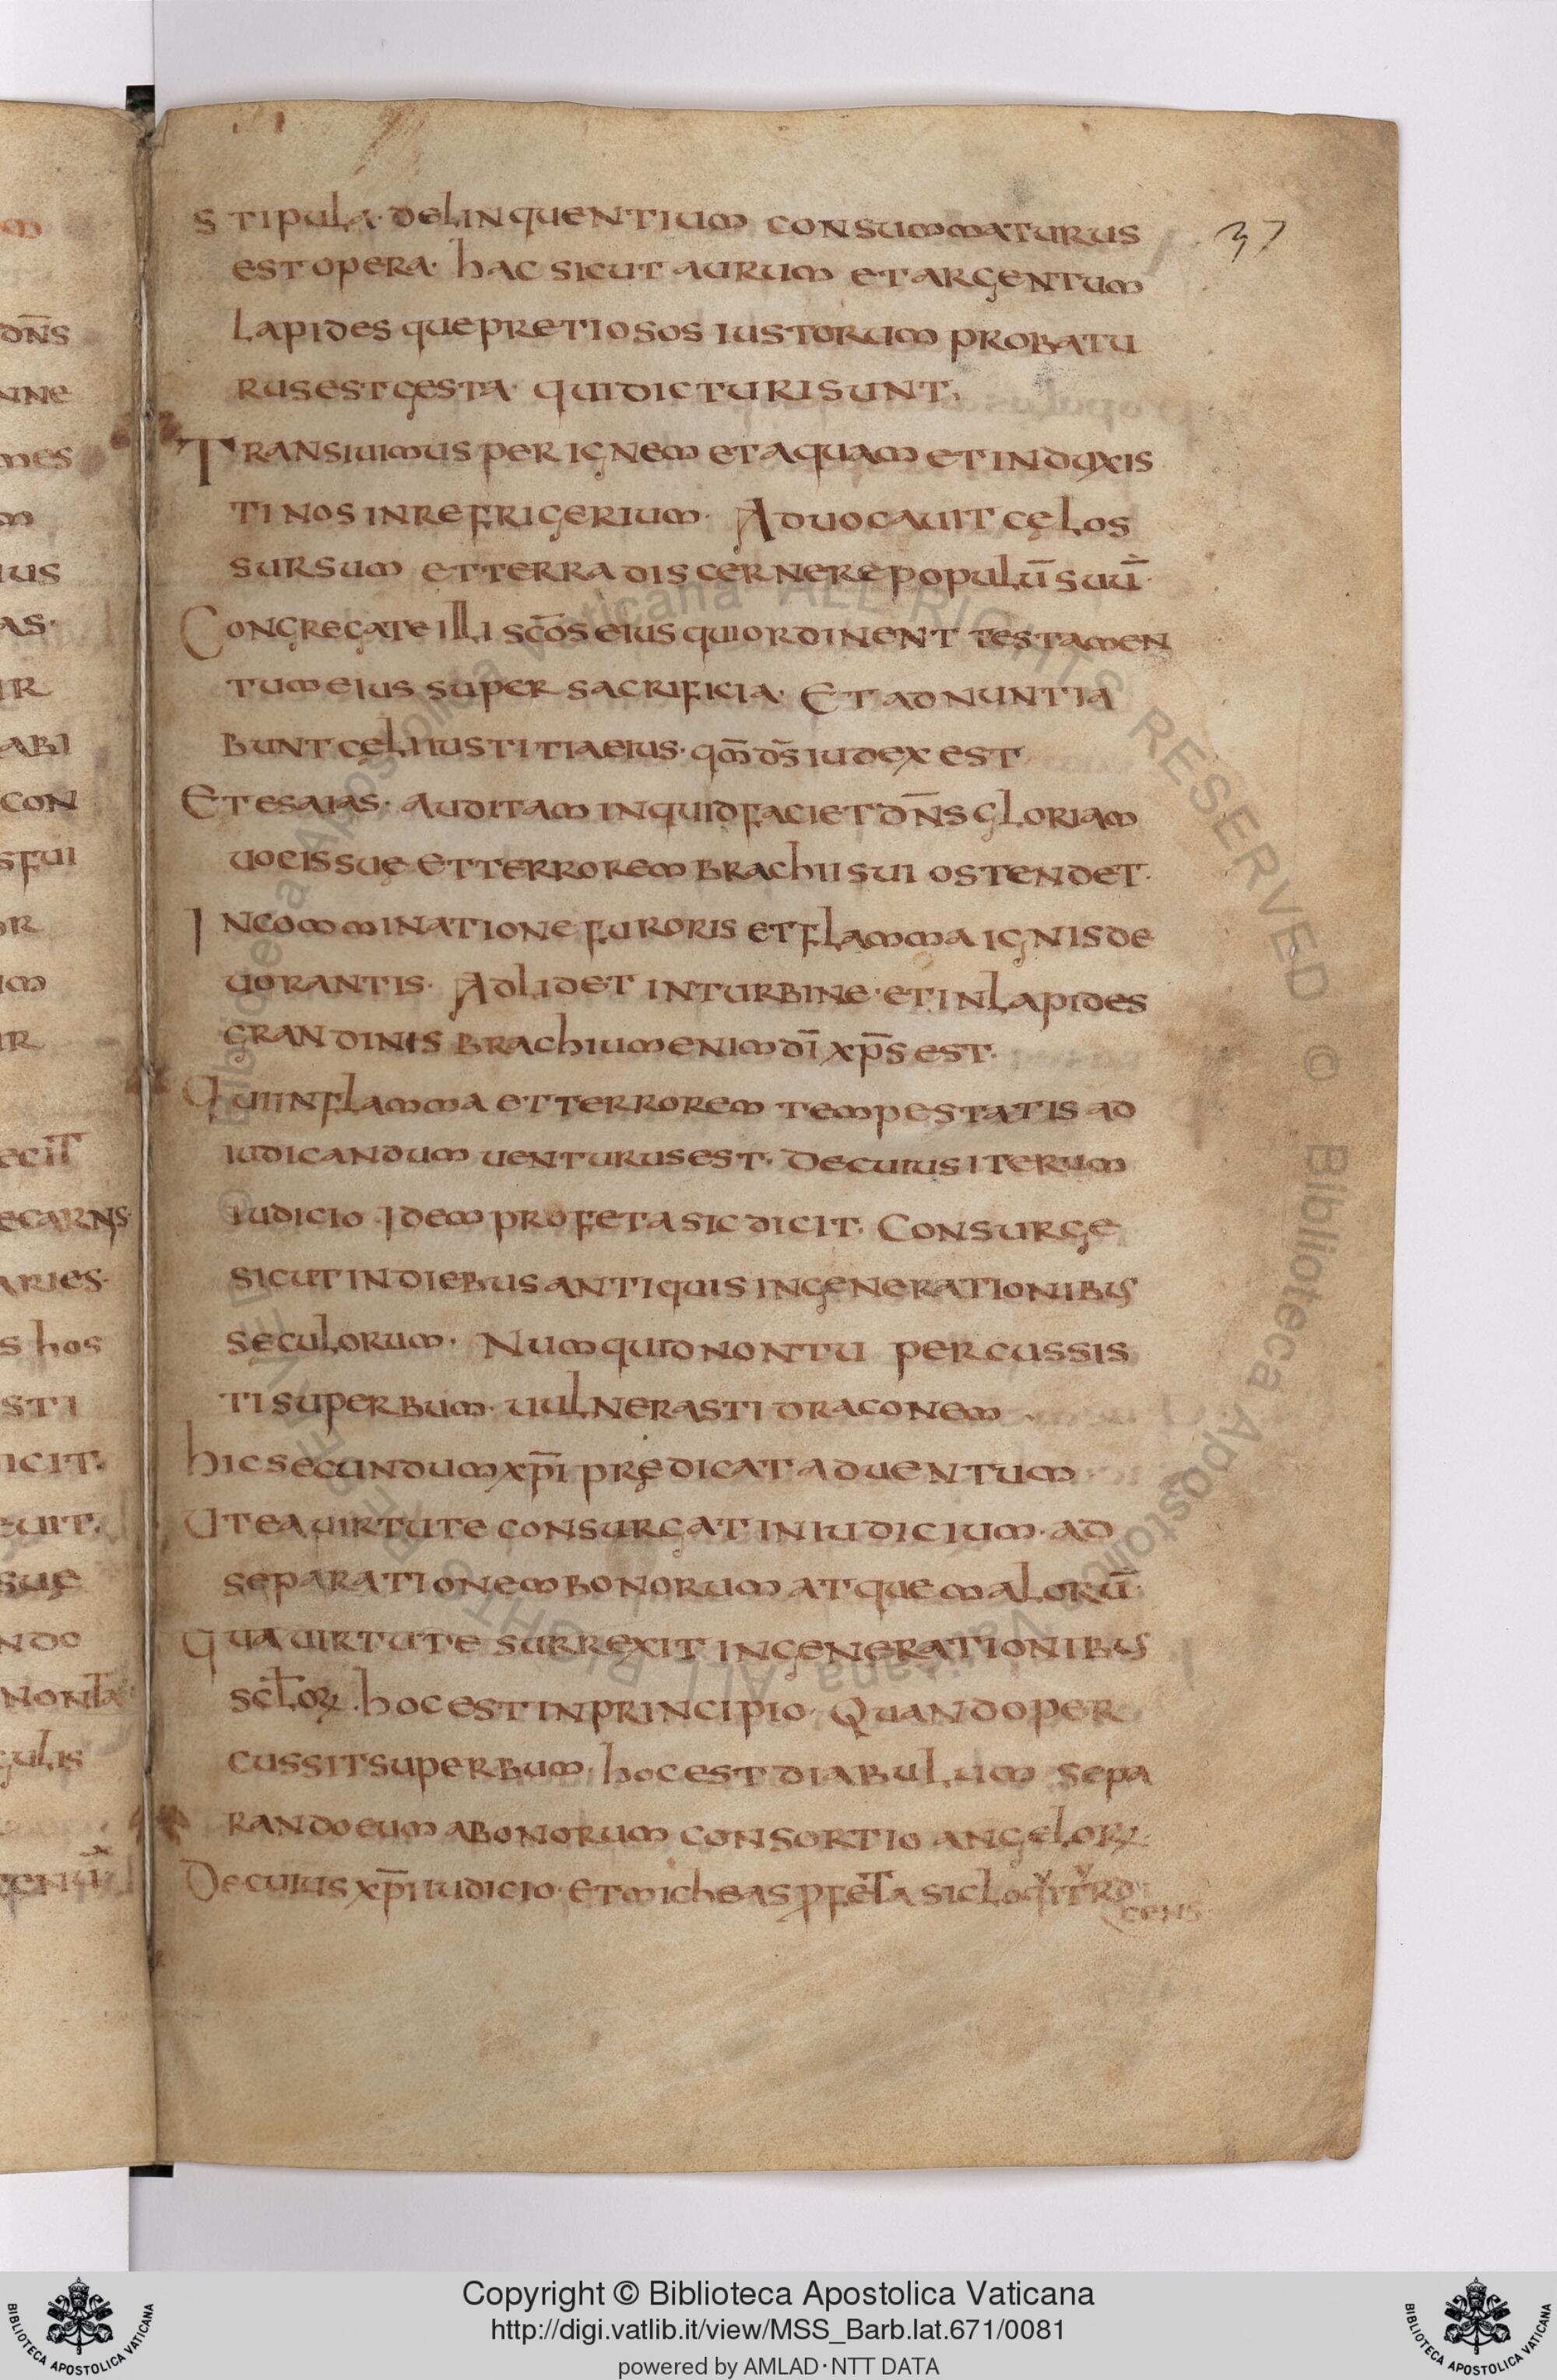 37
stipula· delinquentium consummaturus
est opera· hac sicut aurum et argentum
lapidesque pretiosos iustorum probatu
rus est gesta· qui dicturi sunt,
Transiuimus per ignem et aquam et induxis
ti nos in refrigerium· Aduocauit cęlos
sursum et terra discernere populū suū·
Congregate illi sc̄os eius qui ordinent testamen
tum eius super sacrificia· Et adnuntia
bunt cęli iustitia eius· qm̄ ds̄ iudex est
Et esaias· auditam inquid faciet dn̄s gloriam
uocis suę et terrorem brachii sui ostendet·
In comminatione furoris et flamma ignis de
uorantis· Adlidet in turbine· et in lapides
grandinis brachium enim dī xp̄s est·
Qui in flamma et terrorem tempestatis ad
iudicandum uenturus est· De cuius iterum
iudicio Idem profeta sic dicit· Consurge
sicut in diebus antiquis in generationibus
seculorum· Numquid non tu percussis
ti superbum· uulnerasti draconem
hic secundum xp̄i prędicat aduentum
Ut ea uirtute consurgat in iudicium· ad
separationem bonorum atque malorū·
Qua uirtute surrexit in generationibus
scl̄oꝝ· hoc est in principio· Quando per
cussit superbum· hoc est diabulum sepa
rando eum a bonorum consortio angeloꝝ·
De cuius xp̄i iudicio· et micheas ꝓfeta sic loquitur di
cens
ecit
sue
hos
culis
Copyright © Biblioteca Apostolica Vaticana
http://digi.vatlib.it/view/MSS_Barb.lat.671/0081
powered by AMLAD·NTT DATA
BIBLIOTECA APOSTOLICA VATICANA
BIBLIOTECA APOSTOLICA VATICANA
© Biblioteca Apostolica Vaticana ALL RIGHTS RESERVED © Biblioteca Apostolica Vaticana ALL RIGHTS RESERVED